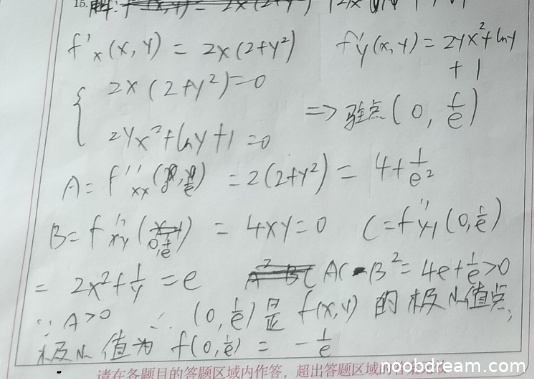 15. 解:
f'x(x,y) = 2x(2+y²) f'y(x,y) = 2yx²+lny
+1
{ 2x(2+y²)=0
2yx²+lny+1=0 => 驻点(0, 1/e)
A = f''xx(0,1/e) = 2(2+y²) = 4+1/e²
B = f''xy(0,1/e) = 4xy=0 C = f''yy(0,1/e)
= 2x²+1/y = e AC-B²=4e+1/e>0
∵ A>0 ∴ (0,1/e)是 f(x,y) 的极小值点,
极小值为 f(0,1/e) = -1/e
请在各题目的答题区域内作答,超出答题区域
noobdream.com